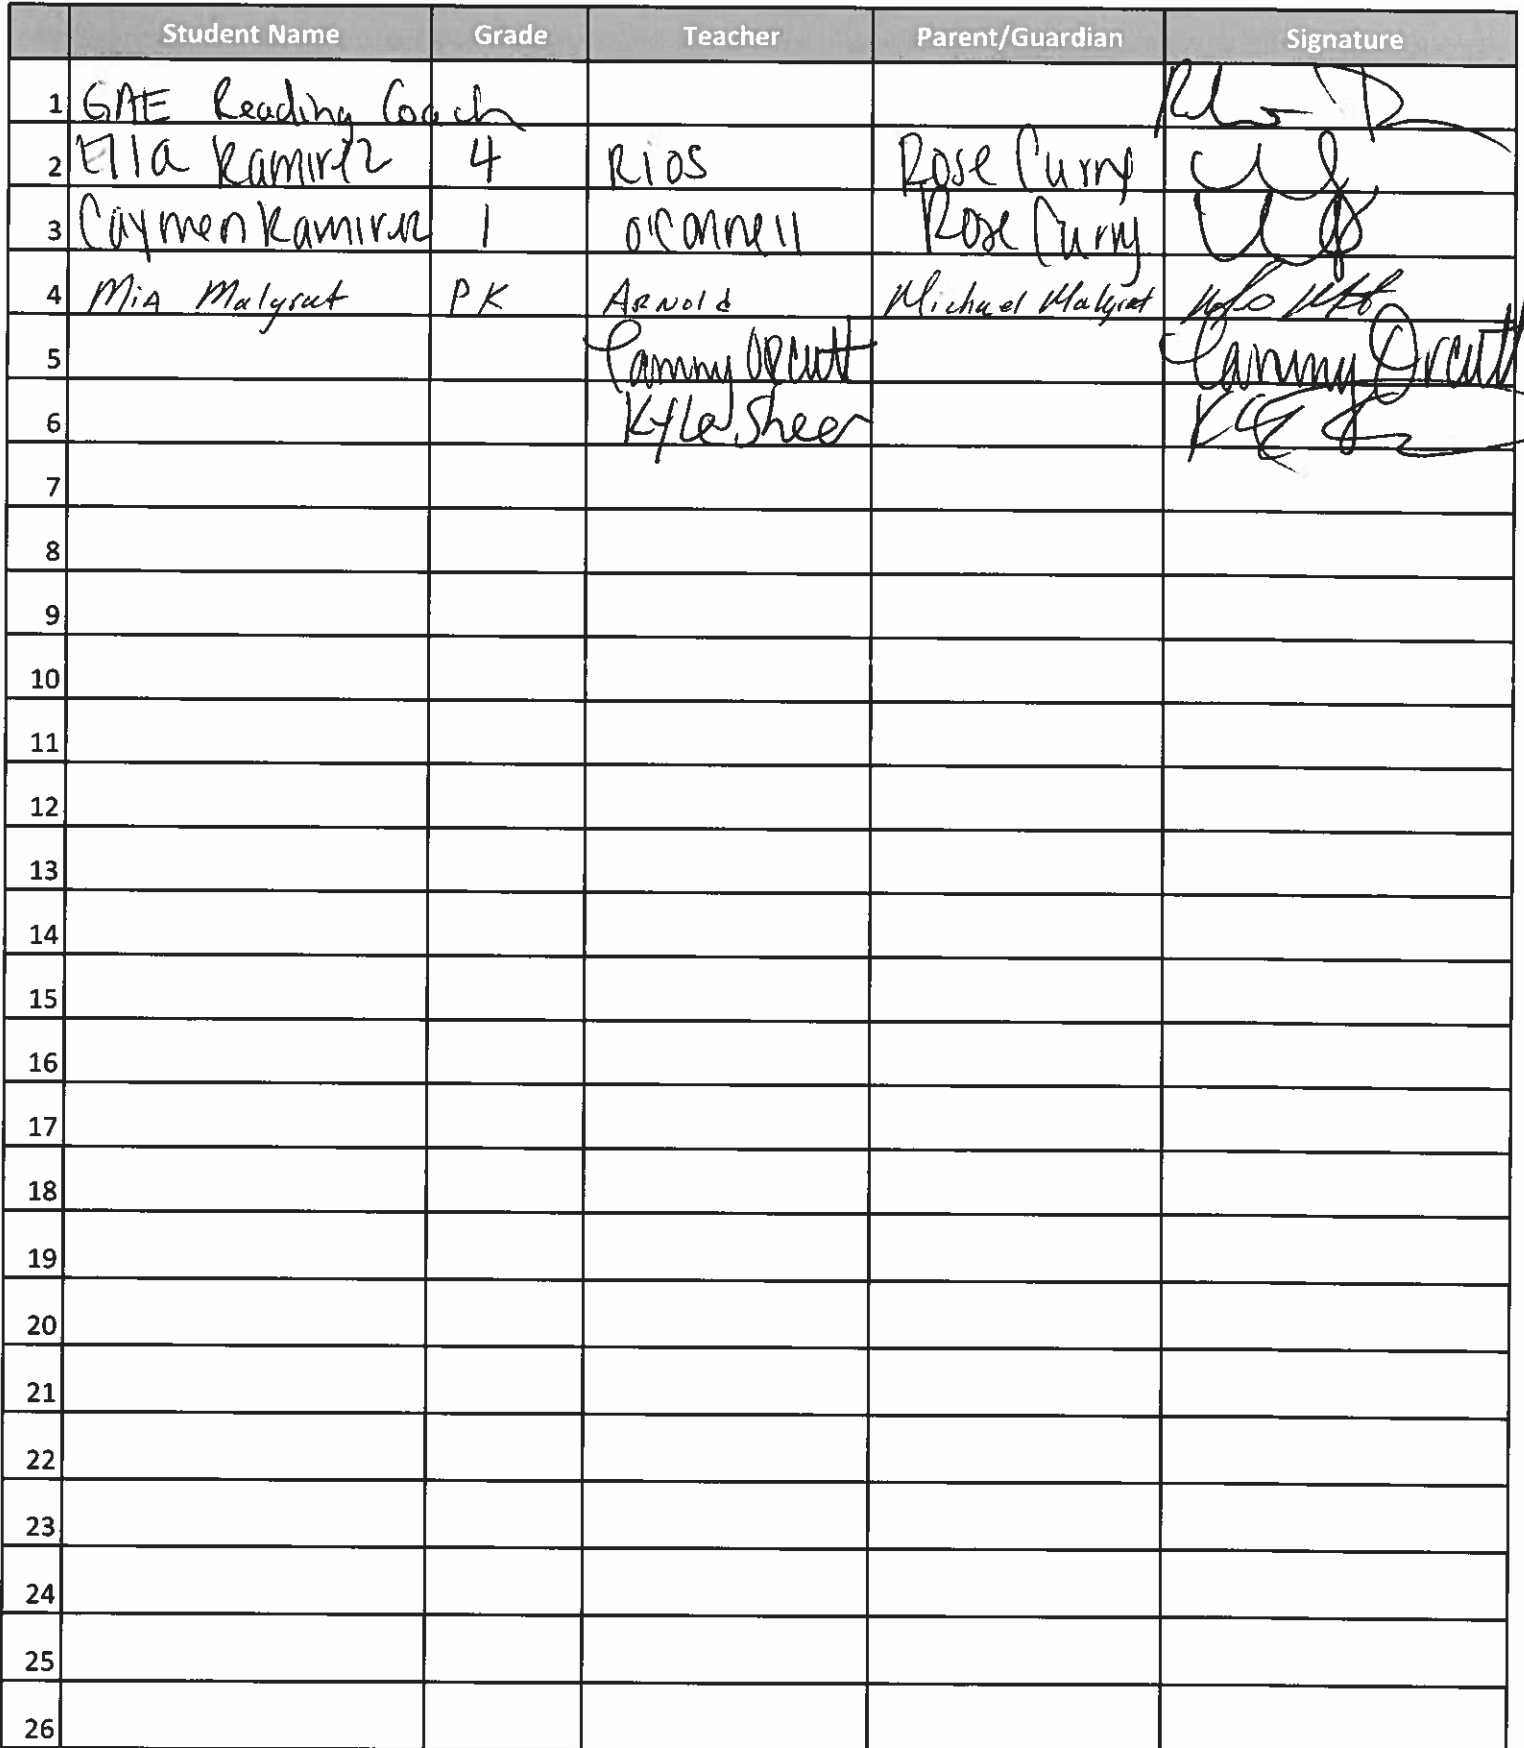 Student Name Grade Teacher Parent/Guardian Signature
1 GAE Reading Coach
2 Ella Ramirez 4 Rios Rose Curry
3 Caymen Ramirez 1 O'Connell Rose Curry
4 Mia Malysut PK Arnold Michael Malysut
5 Tammy Orcutt Tammy Orcutt
6 Kyle Sheer
7
8
9
10
11
12
13
14
15
16
17
18
19
20
21
22
23
24
25
26